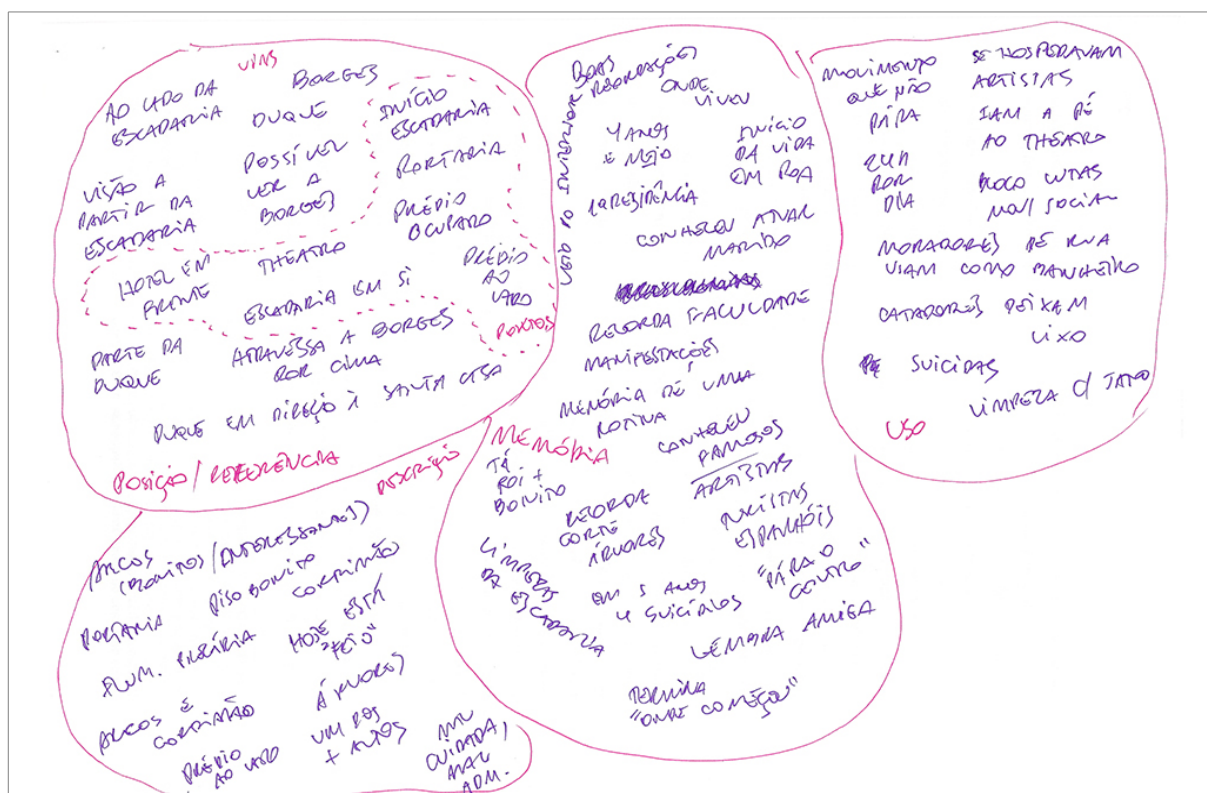 VIAS
AO LADO DA
ESCADARIA
BORGES
DUQUE
INÍCIO
ESCADARIA
VISÃO A
PARTIR DA
ESCADARIA
POSSÍVEL
VER A
BORGES
PORTARIA
PRÉDIO
OCUPADO
HOTEL EM
FRENTE
THEATRO
ESCADARIA EM SI
PRÉDIO
AO
LADO
PONTOS
PARTE DA
DUQUE
ATRAVESSA A BORGES
POR CIMA
DUQUE EM DIREÇÃO À SANTA CASA
POSIÇÃO / REFERÊNCIA
DESCRIÇÃO
ARCOS
(BONITOS/INTERESSANTES)
PORTARIA
PISO BONITO
CORRIMÃO
ILUM. PRECÁRIA
HOJE ESTÁ
"FEIO"
ARCOS E
CORRIMÃO
ÁRVORES
PRÉDIO
AO LADO
UM DOS
+ ALTOS
MAL
CUIDADA,
MAL
ADM.
VEIO DO INTERIOR
BOAS
RECORDAÇÕES
ONDE
VIVEU
4 ANOS
E MEIO
INÍCIO
DA VIDA
EM POA
1ª RESIDÊNCIA
CONHECEU ATUAL
MARIDO
RECORDA FACULDADE
MANIFESTAÇÕES
MEMÓRIA DE UMA
ROTINA
MEMÓRIA
CONHECEU
FAMOSOS
ARTISTAS
JÁ
FOI +
BONITO
RECORDA
CORTE
ÁRVORES
TURISTAS
ESPANHÓIS
LIMPEZA
DA ESCADARIA
EM 5 ANOS
4 SUICÍDIOS
"PARA O
CENTRO"
LEMBRA AMIGA
TERMINA
"ONDE COMEÇOU"
MOVIMENTO
QUE NÃO
PÁRA
SE HOSPEDAVAM
ARTISTAS
IAM A PÉ
AO THEATRO
POR
DIA
BLOCO LUTAS
MOV/ SOCIAL
MORADORES DE RUA
VIAM COMO BANHEIRO
CATADORES DEIXAM
LIXO
SUICIDAS
LIMPEZA C/ JATO
USO